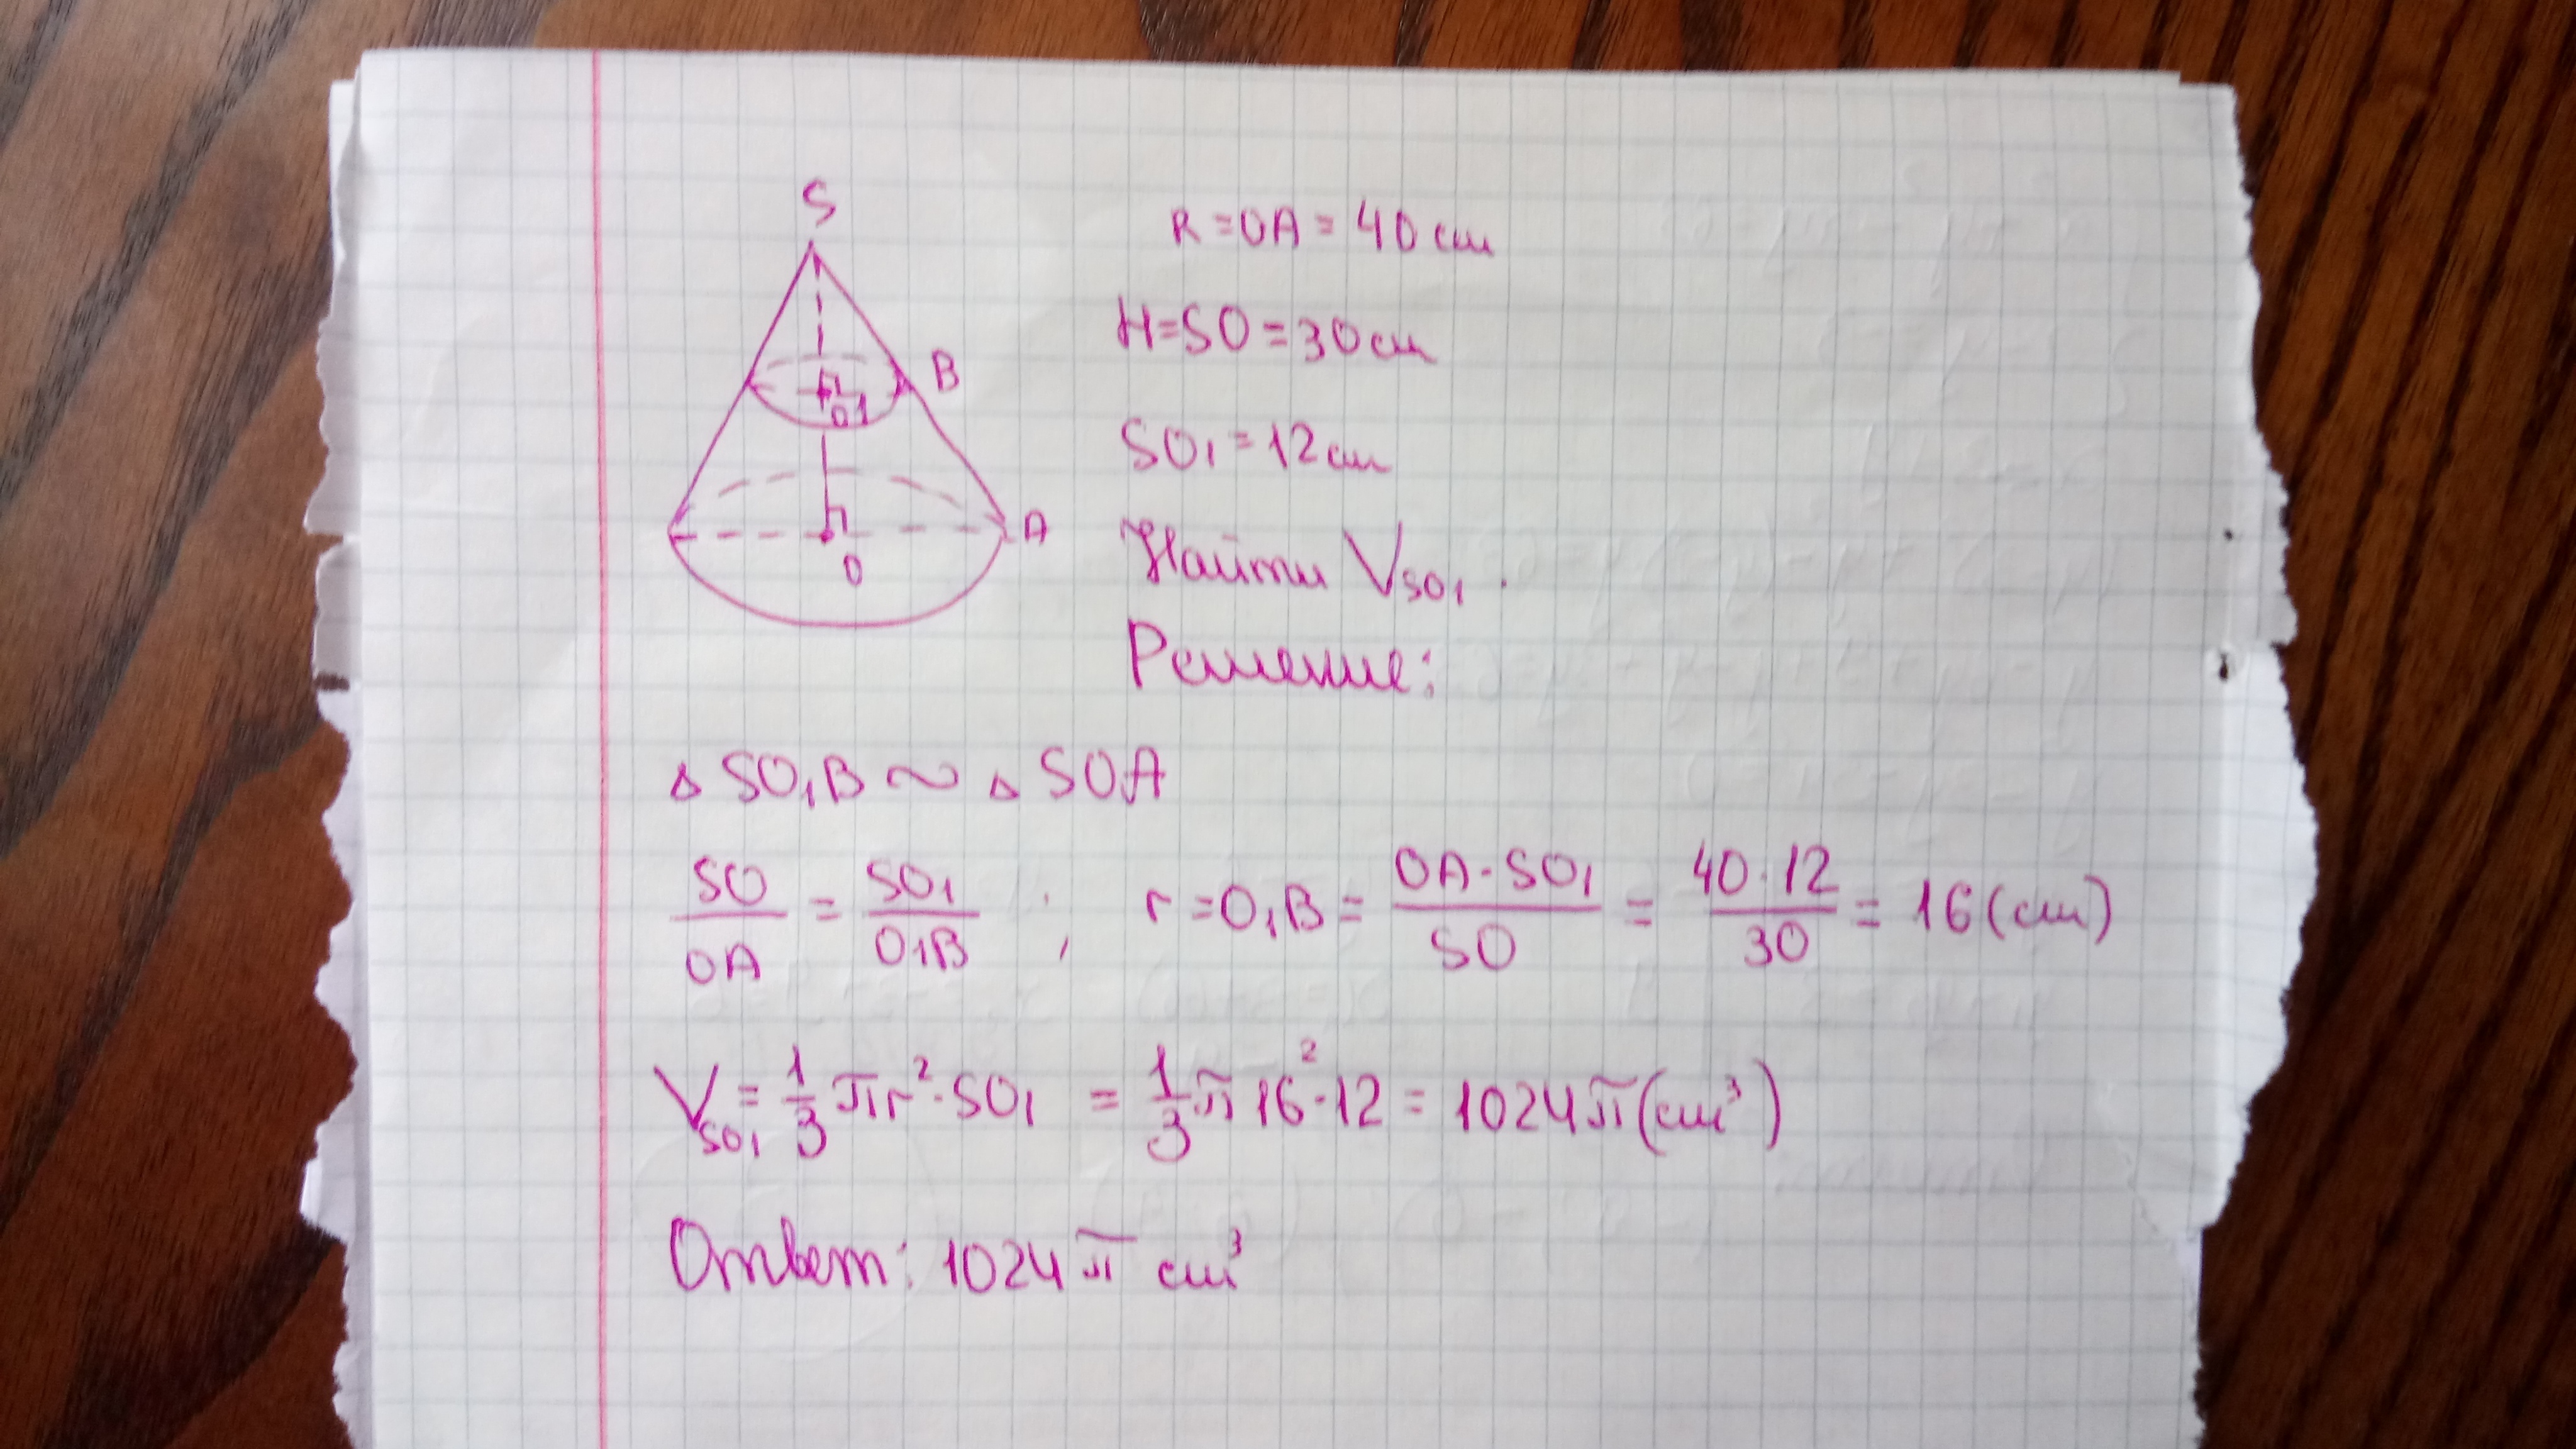 S
B
O1
A
O
R = OA = 40 см
H = SO = 30 см
SO₁ = 12 см
Найти V_SO₁.
Решение:
△ SO₁B ∼ △ SOA
SO/OA = SO₁/O₁B ; r = O₁B = OA·SO₁/SO = 40·12/30 = 16 (см)
V_SO₁ = 1/3 πr²·SO₁ = 1/3 π 16²·12 = 1024π (см³)
Ответ: 1024 π см³